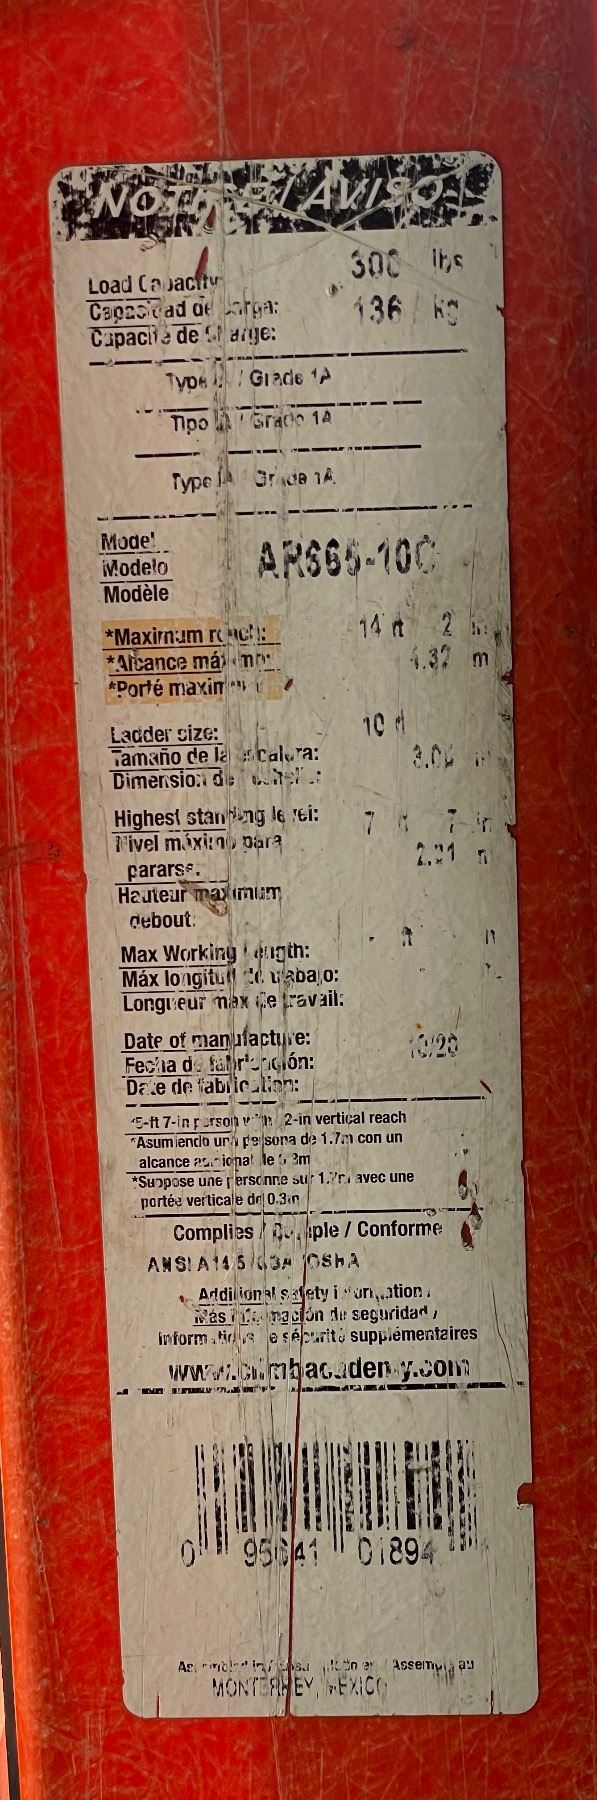 AVISO
300 lbs
Load Capacity
136 kg
Capacidad de carga:
Capacité de
Type / Grade 1A
Tipo / Grado 1A
Type Grade 1A
Model
Modelo
Modèle
*Maximum reach: 14 ft 2 in
*Alcance máximo: 4.32 m
*Porté maximum
Ladder size: 10 ft
Tamaño de la escalera:
Dimension de
Highest standing level: 7 ft 7 in
Nivel máximo para
pararse.
Hauteur maximum
debout.
Max Working Length: ft
Máx longitud de trabajo:
Longueur max de travail:
Date of manufacture: 10/20
Fecha de fabricación:
Date de fabrication:
*5-ft 7-in person 2-in vertical reach
*Asumiendo una persona de 1.7m con un
alcance
*Suppose une personne sur 1.7m avec une
portée verticale de 0.3m
Complies / Cumple / Conforme
ANSI A14.5 OSHA
Additional safety information
Más información de seguridad /
Informations de sécurité supplémentaires
www.climbacademy.com
0 95641 01894
MONTERREY, MEXICO